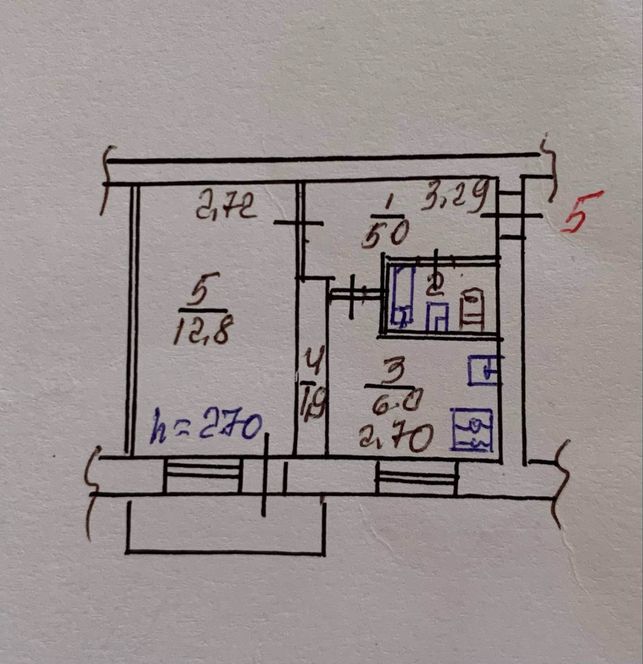 2,72
1
50
3,29
5
2
5
12,8
4
1,9
3
6.0
2,70
h = 270